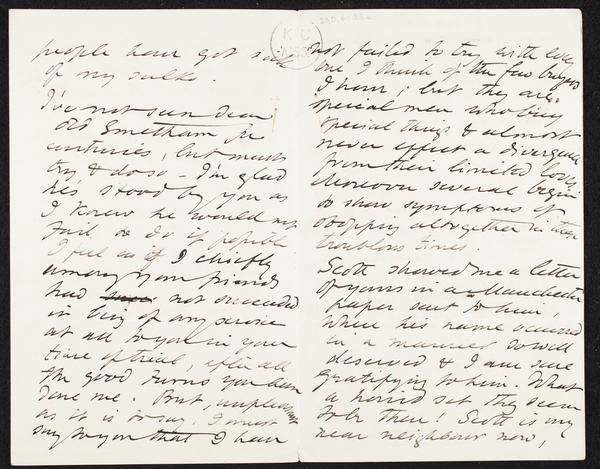 people have got sick
of my sulks.
I've not seen dear
old Smetham for
centuries, but must
try & do so – I'm glad
he's stood by you as
I knew he would not
fail to do if possible
I feel as if I chiefly
among your friends
had not succeeded
in being of any service
at all to you in your
time of trial, after all
the good turns you have
done me. But, unpleasant
as it is to say, I must
say to you that I have
not failed to try with every
one I think of the few buyers
I have; but they are
special men who buy
special things & almost
never effect a divergence
from their limited loves.
Moreover several begin
to show symptoms of
stopping altogether in these
troublous times.
Scott showed me a letter
of yours in a Manchester
paper sent to him
where his name occurred
in a manner so well
deserved & I am sure
gratifying to him. What
a horrid set they seem
to be there! Scott is my
near neighbour now,